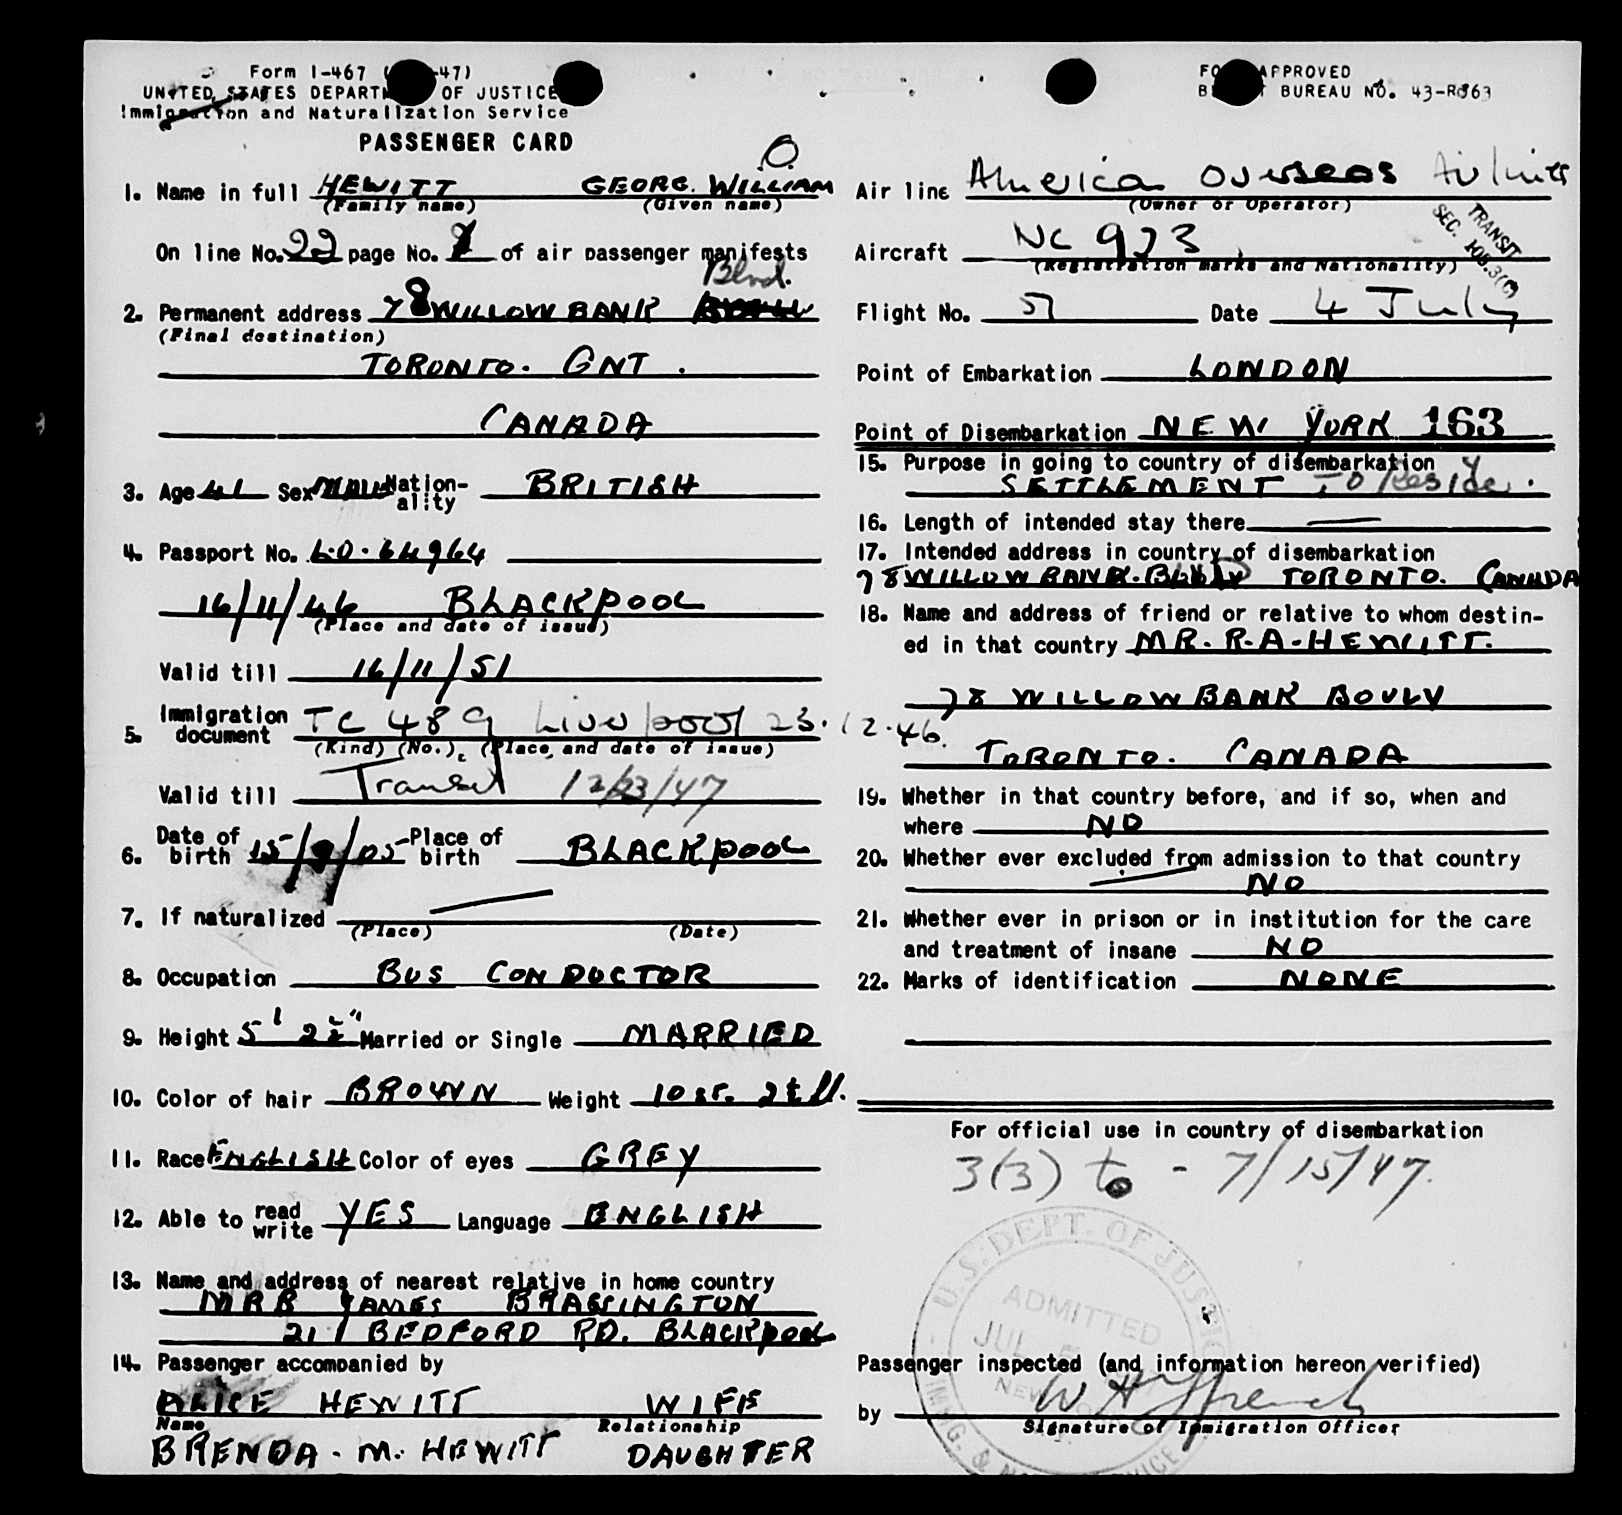 Form I-467 ( -47)
UNITED STATES DEPARTMENT OF JUSTICE
Immigration and Naturalization Service
PASSENGER CARD
O.
1. Name in full HEWITT GEORG. WILLIAM
(Family name) (Given name)
On line No. 22 page No. of air passenger manifests
Blvd.
2. Permanent address 78 WILLOWBANK
(Final destination)
TORONTO. ONT.
CANADA
3. Age 41 Sex MALE Nation-
ality BRITISH
4. Passport No. L.O. 64964
16/11/46 BLACKPOOL
(Place and date of issue)
Valid till 16/11/51
5. Immigration
document TC 489 Liverpool 23.12.46.
(Kind) (No.), (Place and date of issue)
Valid till Transit 12/23/47
6. Date of
birth 15/9/05 Place of
birth BLACKPOOL
7. If naturalized —
(Place) (Date)
8. Occupation BUS CONDUCTOR
9. Height 5' 2½" Married or Single MARRIED
10. Color of hair BROWN Weight 10 ST. 2½ ll.
11. Race ENGLISH Color of eyes GREY
12. Able to read
write YES Language ENGLISH
13. Name and address of nearest relative in home country
MRR JAMES BRASSINGTON
211 BEDFORD RD. BLACKPOOL
14. Passenger accompanied by
ALICE HEWITT WIFE
Name Relationship
BRENDA. M. HEWITT DAUGHTER
FORM APPROVED
BUDGET BUREAU NO. 43-R063
Air line America Overseas Airlines
(Owner or Operator)
TRANSIT
SEC. 105.3(c)
Aircraft NC 973
(Registration marks and Nationality)
Flight No. 51 Date 4 July
Point of Embarkation LONDON
Point of Disembarkation NEW YORK 163
15. Purpose in going to country of disembarkation
SETTLEMENT To Reside.
16. Length of intended stay there —
17. Intended address in country of disembarkation
78 WILLOWBANK. BLVD TORONTO. CANADA
18. Name and address of friend or relative to whom destin-
ed in that country MR. R.A. HEWITT.
78 WILLOWBANK BOULV
TORONTO. CANADA
19. Whether in that country before, and if so, when and
where NO
20. Whether ever excluded from admission to that country
NO
21. Whether ever in prison or in institution for the care
and treatment of insane NO
22. Marks of identification NONE
For official use in country of disembarkation
3(3) to - 7/15/47.
U.S. DEPT. OF JUSTICE
ADMITTED
JUL 5
NEW YORK
IMMIG. & NAT. SERVICE
Passenger inspected (and information hereon verified)
by W H French
Signature of Immigration Officer